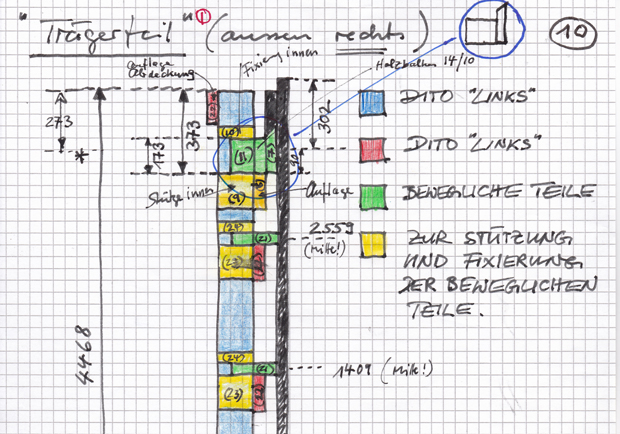 "Trägerteil" ① (aussen rechts)
10
Auflage
Abdeckung
Fixierung innen
Holzbalken 14/10
273
*
173
373
302
40
DITO "LINKS"
DITO "LINKS"
BEWEGLICHE TEILE
ZUR STÜTZUNG
UND FIXIERUNG
DER BEWEGLICHEN
TEILE.
(10)
(11)
Stütze innen
(9)
Auflage
(24)
(21)
2559
(Mitte!)
(23)
4468
(24)
(21)
1409 (Mitte!)
(23)